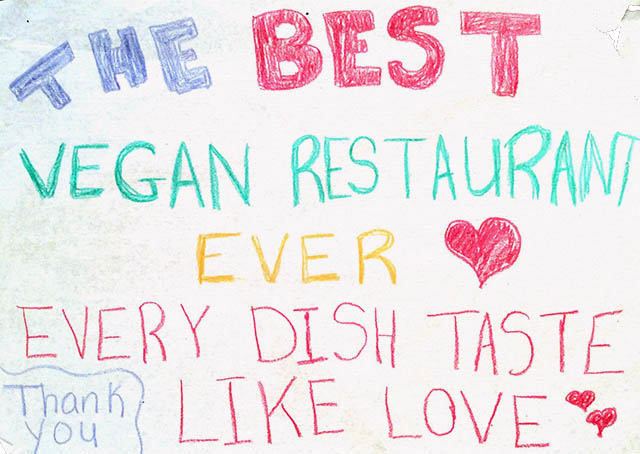 THE BEST
VEGAN RESTAURANT
EVER
EVERY DISH TASTE
LIKE LOVE
Thank
you